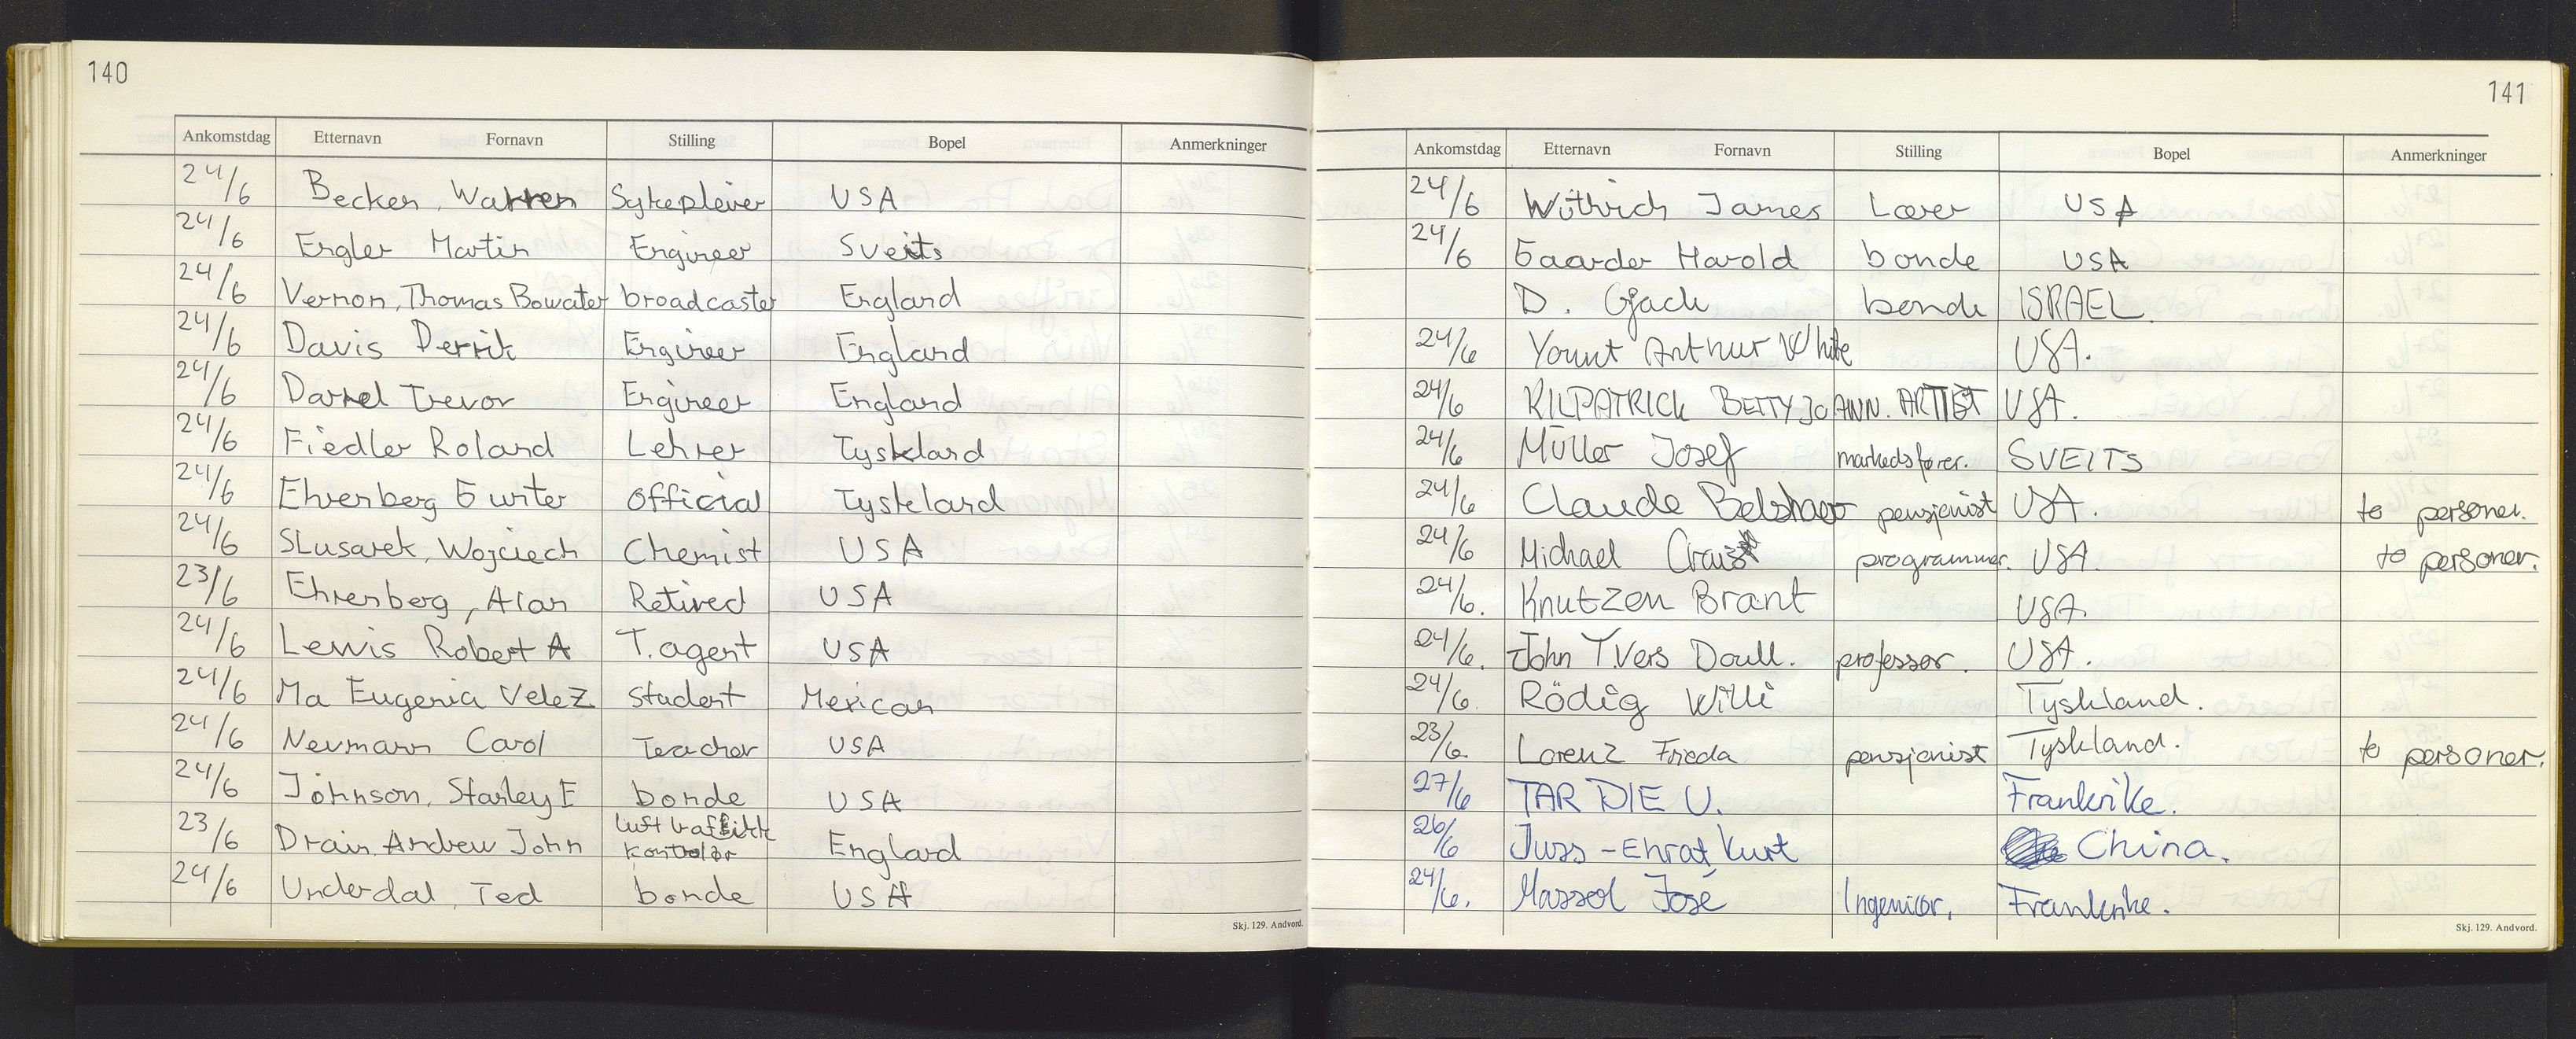 140
Ankomstdag Etternavn Fornavn Stilling Bopel Anmerkninger
24/6 Becker, Warren Sykepleier USA
24/6 Engler Martin Engineer Sveits
24/6 Vernon, Thomas Bowater broadcaster England
24/6 Davis Derrik Engineer England
24/6 Darrel Trevor Engineer England
24/6 Fiedler Roland Lehrer Tyskland
24/6 Ehrenberg Gunter official Tyskland
24/6 Slusarek, Wojciech Chemist USA
23/6 Ehrenberg, Alan Retired USA
24/6 Lewis Robert A T. agent USA
24/6 Ma Eugenia Velez student Mexican
24/6 Neumann Carol Teacher USA
24/6 Johnson, Stanley E bonde USA
23/6 Drain, Andrew John luft trafikk kontrolør England
24/6 Underdal, Ted bonde USA
Skj. 129. Andvord.
141
Ankomstdag Etternavn Fornavn Stilling Bopel Anmerkninger
24/6 Wüthrich James Lærer USA
24/6 Gaarder Harold bonde USA
D. Gjach bonde ISRAEL.
24/6 Yount Arthur White USA.
24/6 KILPATRICK BETTY JO ANN. ARTIST USA.
24/6 Müller Josef markedsfører. SVEITS
24/6 Claude Belshaw pensjonist USA. to personer.
24/6 Michael programmer. USA. to personer.
24/6. Knutzen Brant USA.
24/6. John T.Vers Doull. professor. USA.
24/6. Rödig Willi Tyskland.
23/6. Lorenz Frieda pensjonist Tyskland. to personer.
27/6 TAR DIE U. Frankrike.
26/6 Juzs-Ehrat Kurt China.
24/6. Massol José Ingeniør. Frankrike.
Skj. 129. Andvord.